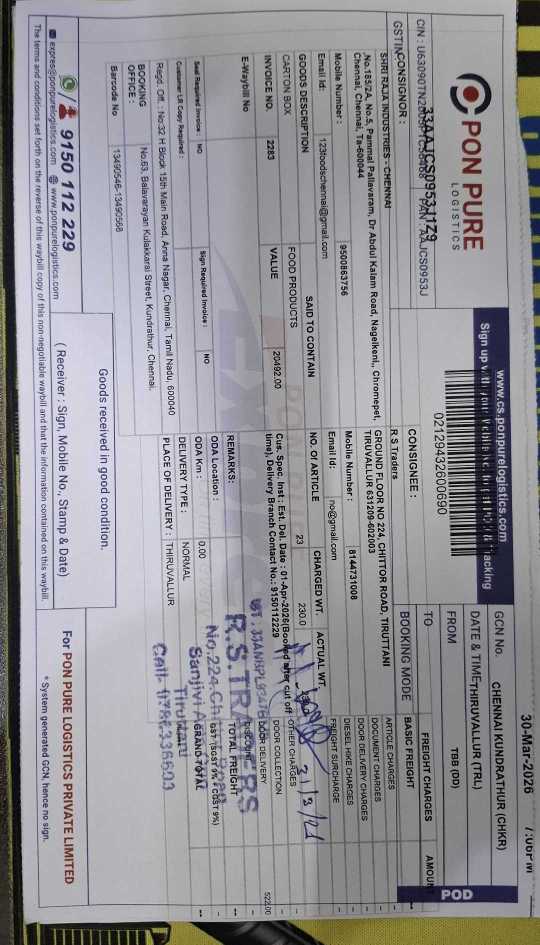 PON PURE
LOGISTICS
www.cs.ponpurelogistics.com
Sign up with your Mobile No. to get POD & Tracking
02129432600690
30-Mar-2026
GCN No.
CHENNAI KUNDRATHUR (CHKR)
DATE & TIME
THIRUVALLUR (TRL)
FROM
TBB (DD)
TO
BOOKING MODE
POD
33AAJCS0953J1Z9
PAN : AAJCS0953J
GSTIN
CONSIGNOR :
SHRI RAJA INDUSTRIES - CHENNAI
,No.185/2A, No.5, Pammal Pallavaram, Dr Abdul Kalam Road, Nagelkeni,, Chromepet,
Chennai, Chennai, Ta-600044
Mobile Number :
9500863756
Email Id:
123foodschennai@gmail.com
CONSIGNEE :
R S Traders
GROUND FLOOR NO 224, CHITTOR ROAD, TIRUTTANI
TIRUVALLUR 631209-602003
Mobile Number :
8144731008
Email Id:
no@gmail.com
GOODS DESCRIPTION
SAID TO CONTAIN
NO. OF ARTICLE
CHARGED WT.
ACTUAL WT.
CARTON BOX
FOOD PRODUCTS
23
230.0
INVOICE NO.
2283
VALUE
20492.00
Cus. Spec. Inst : Est. Del. Date : 01-Apr-2026(Booked after cut off
time), Delivery Branch Contact No.: 9150112229
E-Waybill No
REMARKS:
ODA Location :
ODA Km :
0.00
Seal Required Invoice : NO
Sign Required Invoice : NO
Customer LR Copy Required :
DELIVERY TYPE :
NORMAL
PLACE OF DELIVERY :
THIRUVALLUR
FREIGHT CHARGES
AMOUNT
BASIC FREIGHT
ARTICLE CHARGES
DOCUMENT CHARGES
DOOR DELIVERY CHARGES
DESIEL HIKE CHARGES
FREIGHT SURCHARGE
OTHER CHARGES
DOOR COLLECTION
DOOR DELIVERY
522.00
TOTAL FREIGHT
GRAND TOTAL
R.S.TRADERS
Tiruttani
Regd. Off. : No:32 H Block 15th Main Road, Anna Nagar, Chennai, Tamil Nadu, 600040
BOOKING
OFFICE :
No.63, Balavarayan Kulakkarai Street, Kundrathur, Chennai.
Barcode No
13490546-13490568
Goods received in good condition.
9150 112 229
( Receiver : Sign, Mobile No., Stamp & Date)
For PON PURE LOGISTICS PRIVATE LIMITED
expres@ponpurelogistics.com
www.ponpurelogistics.com
* System generated GCN, hence no sign.
The terms and conditions set forth on the reverse of this waybill copy of this non-negotiable waybill and that the information contained on this waybill.